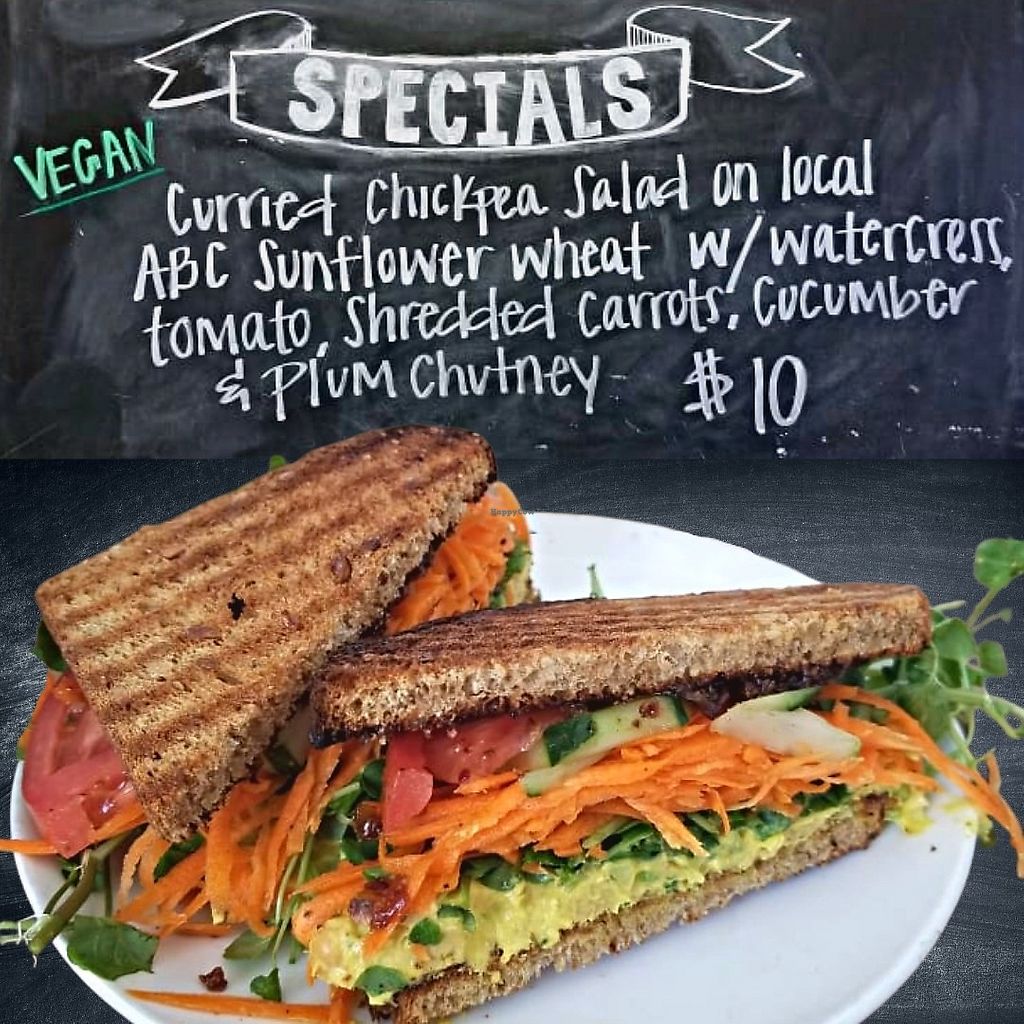 SPECIALS
VEGAN
Curried Chickpea Salad on local
ABC Sunflower Wheat w/watercress,
tomato, Shredded Carrots, Cucumber
& Plum Chutney $10
HappyCow